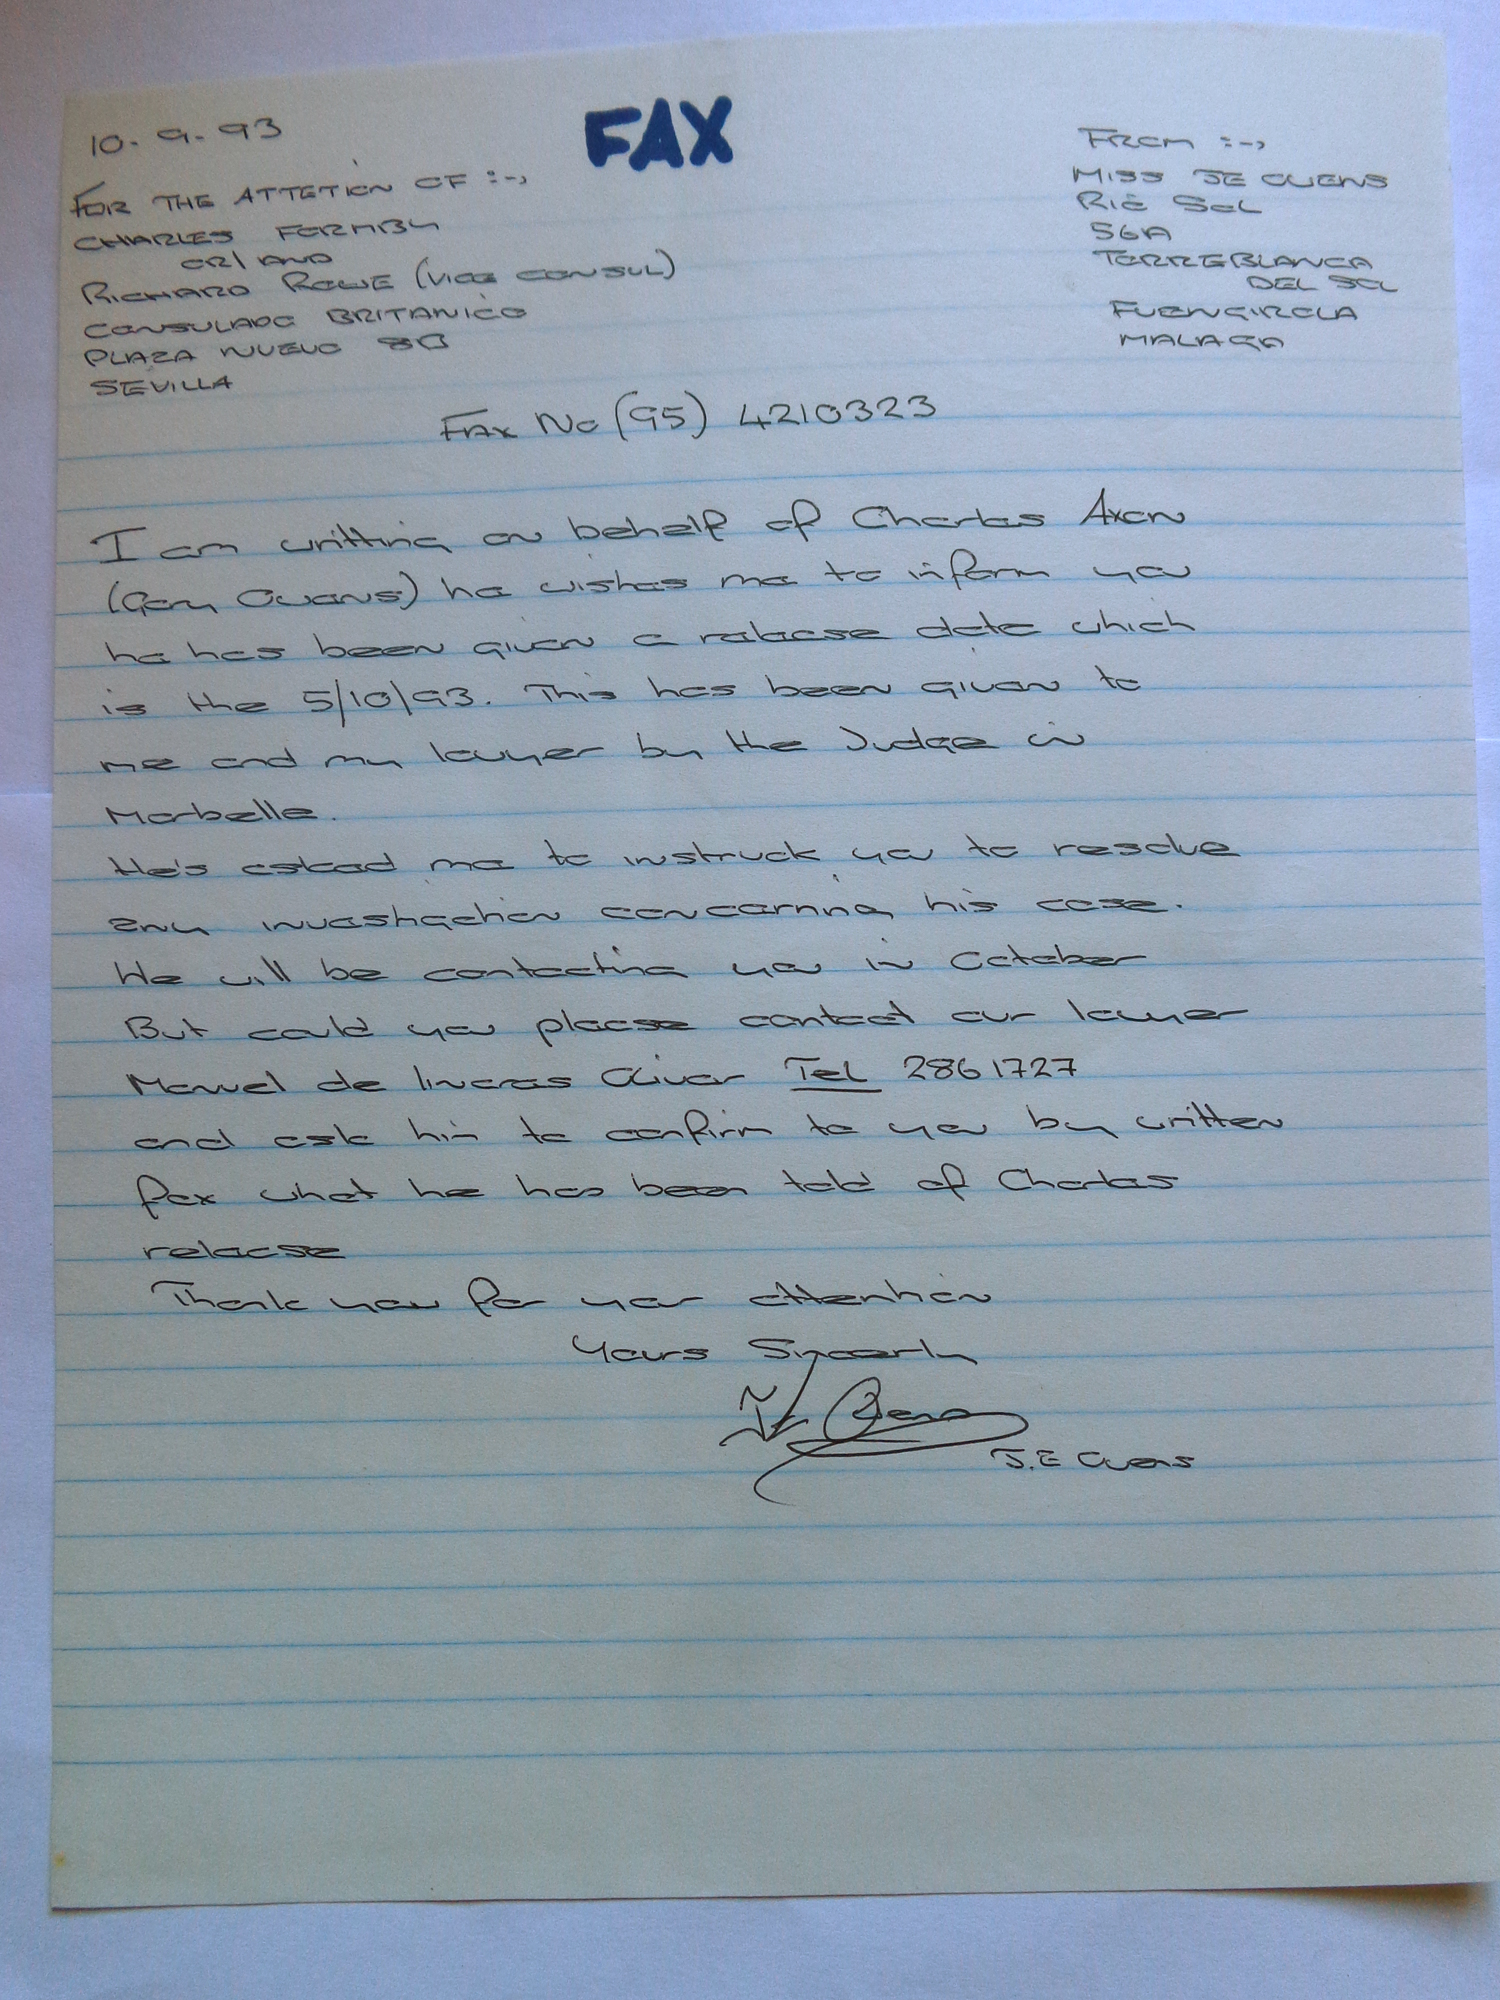 10-9-93
FAX
FOR THE ATTETION OF :-,
CHARLES FORMBY
OR/AND
RICHARD ROWE (VICE CONSUL)
CONSULADO BRITANICO
PLAZA NUEVO 8B
SEVILLA
FROM :-,
MISS JE OWENS
RIO SOL
56A
TORREBLANCA
DEL SOL
FUENGIROLA
MALAGA
FAX NO (95) 4210323
I am writting on behalf of Charles Axon
(Gary Owens) he wishes me to inform you
he has been given a release date which
is the 5/10/93. This has been given to
me and my lawyer by the Judge in
Marbella.
He's asked me to instruck you to resolve
any investigation concerning his case.
We will be contacting you in October
But could you please contact our lawyer
Manuel de linares Olivar Tel 2861727
and ask him to confirm to you by written
fax what he has been told of Charles
release
Thank you for your attention
Yours Sincerly
J.E Owens